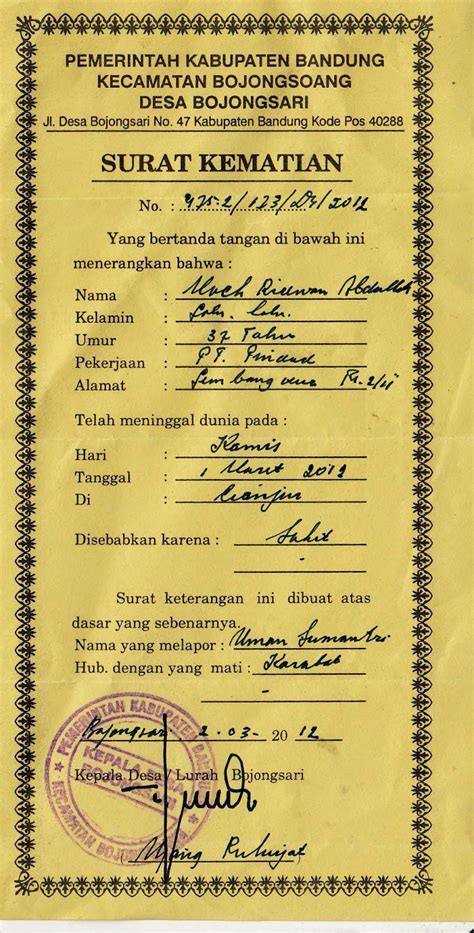 PEMERINTAH KABUPATEN BANDUNG
KECAMATAN BOJONGSOANG
DESA BOJONGSARI
Jl. Desa Bojongsari No. 47 Kabupaten Bandung Kode Pos 40288
SURAT KEMATIAN
No. : 475.2/123/Ds/2012
Yang bertanda tangan di bawah ini
menerangkan bahwa :
Nama : Moch Ridwan Abdullah
Kelamin : Laki. Laki.
Umur : 37 Tahun
Pekerjaan : PT. Pindad
Alamat :
Telah meninggal dunia pada :
Hari : Kamis
Tanggal : 1 Maret 2012
Di : Cianjur
Disebabkan karena : Sakit
Surat keterangan ini dibuat atas
dasar yang sebenarnya.
Nama yang melapor : Uman Sumantri
Hub. dengan yang mati : Karabat
Bojongsari 2-03- 20 12
Kepala Desa / Lurah Bojongsari
PEMERINTAH KABUPATEN BANDUNG
KEPALA DESA
BOJONGSARI
KECAMATAN BOJONGSOANG
Ujang Ruhiyat